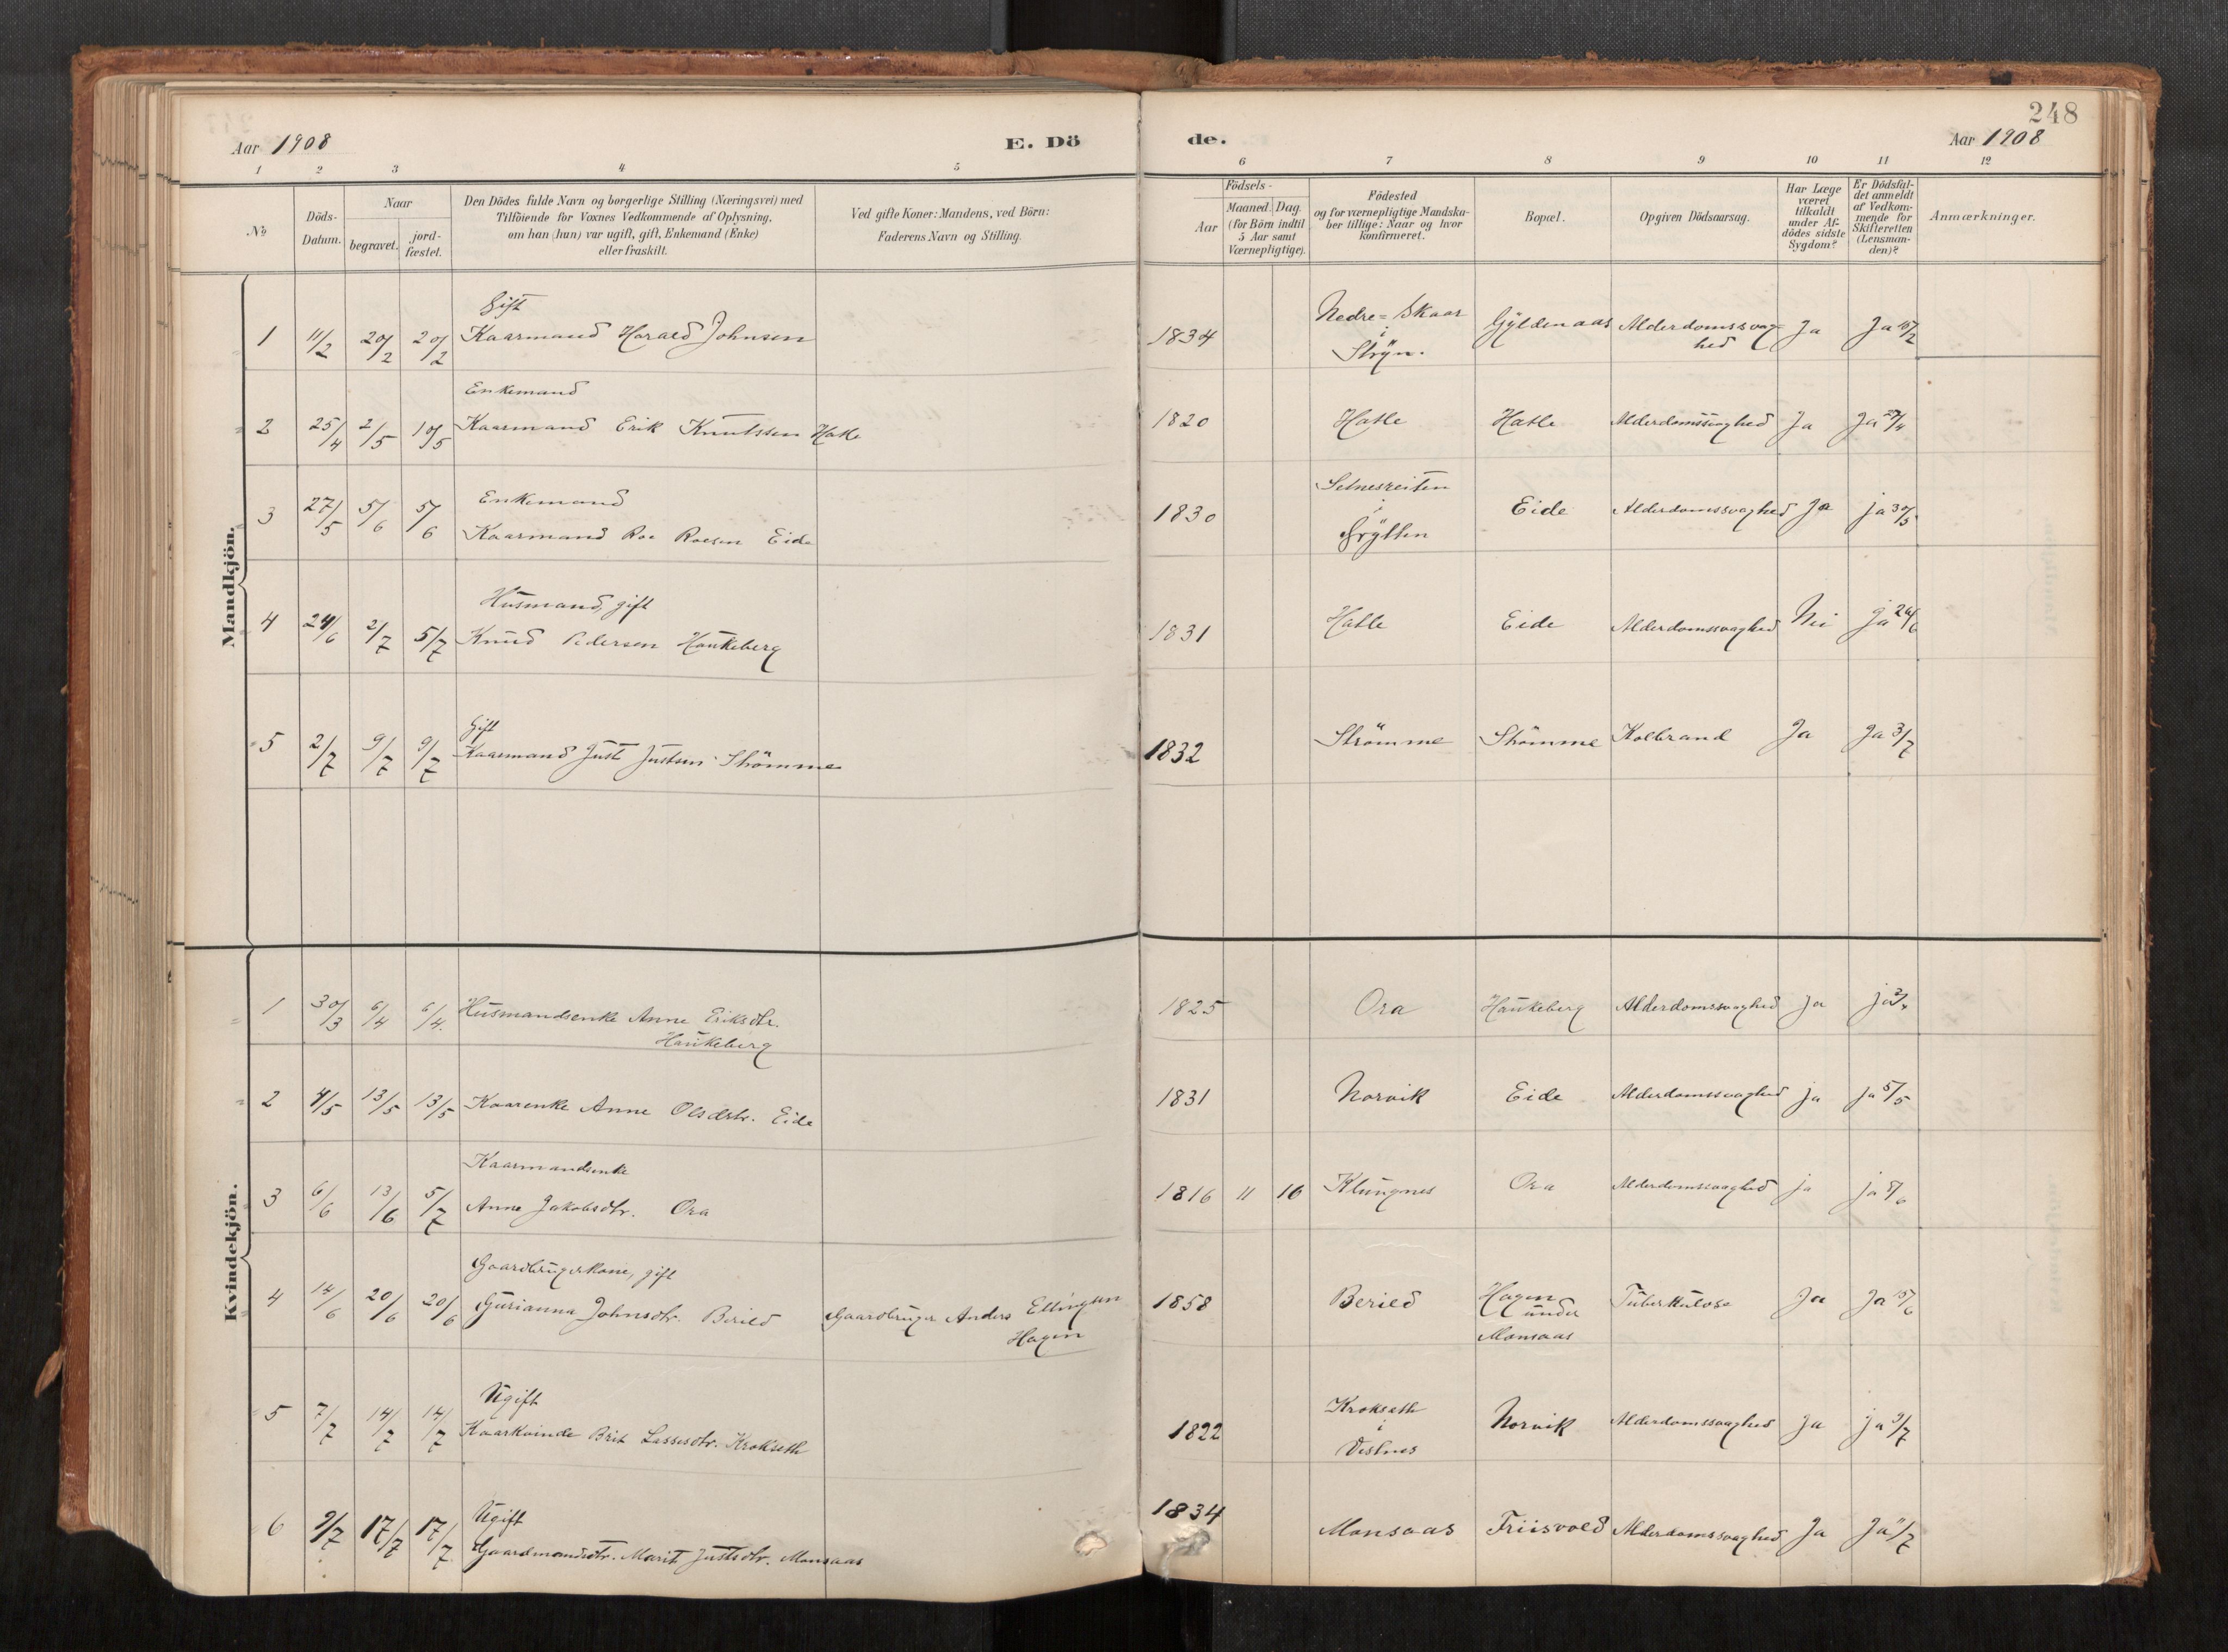 248
Aar 1908 E. Dö de. Aar 1908
1 2 3 4 5 6 7 8 9 10 11 12
№
Döds-
Datum.
Naar
begravet.
jord-
fæstet.
Den Dödes fulde Navn og borgerlige Stilling (Næringsvei) med
Tilföiende for Voxnes Vedkommende af Oplysning,
om han (hun) var ugift, gift, Enkemand (Enke)
eller fraskilt.
Ved gifte Koner: Mandens, ved Börn:
Faderens Navn og Stilling.
Födsels-
Aar
Maaned. Dag.
(for Börn indtil
5 Aar samt
Værnepligtige).
Födested
og for værnepligtige Mandska-
ber tillige: Naar og hvor
konfirmeret.
Bopæl.
Opgiven Dödsaarsag.
Har Læge
været
tilkaldt
under Af-
dödes sidste
Sygdom?
Er Dödsfal-
det anmeldt
af Vedkom-
mende for
Skifteretten
(Lensman-
den)?
Anmærkninger.
Mandkjön.
Gift
1 11/2 20/2 20/2 Kaarmand Harald Johnsen 1834 Nedre=Skaar i Stryn. Gyldenaas Alderdomssvag-hed Ja Ja 15/2
Enkemand
2 25/4 2/5 10/5 Kaarmand Erik Knutssen Hatle 1820 Hatle Hatle Alderdomssvaghed Ja Ja 27/4
Enkemand
3 27/5 5/6 5/6 Kaarmand Roe Roesen Eide 1830 Setnesreiten i Grytten Eide Alderdomssvaghed Ja ja 30/5
Husmand, gift
4 24/6 2/7 5/7 Knud Pedersen Haukeberg 1831 Hatle Eide Alderdomssvaghed Nei ja 26/6
Gift
5 2/7 9/7 9/7 Kaarmand Just Justsen Strömme 1832 Strömme Strömme Kolbrand Ja Ja 3/7
Kvindekjön.
1 30/3 6/4 6/4. Husmandsenke Anne Eriksdtr. 1825 Ora Haukeberg Alderdomssvaghed ja ja 2/4
Haukeberg
2 4/5 13/5 13/5 Kaarenke Anne Olsdtr. Eide 1831 Norvik Eide Alderdomssvaghed ja ja 5/5
Kaarmandsenke
3 6/6 13/6 5/7 Anne Jakobsdtr. Ora 1816 11 16 Klungnes Ora Alderdomssvaghed ja ja 8/6
Gaardbrugerkone, gift
4 14/6 20/6 20/6 Gurianna Johnsdtr. Berild Gaardbruger Anders Ellingsen 1858 Berild Hagen Tuberkulose Ja Ja 15/6
Hagen under
Monsaas
Ugift
5 7/7 14/7 14/7 Kaarkvinde Brit Lassesdtr. Krokseth 1822 Krokseth i Vestnes Norvik Alderdomssvaghed Ja ja 9/7
Ugift
6 9/7 17/7 17/7 Gaardmandsdtr. Marit Justsdtr. Monsaas 1834 Monsaas Friisvold Alderdomssvaghed Ja Ja 11/7